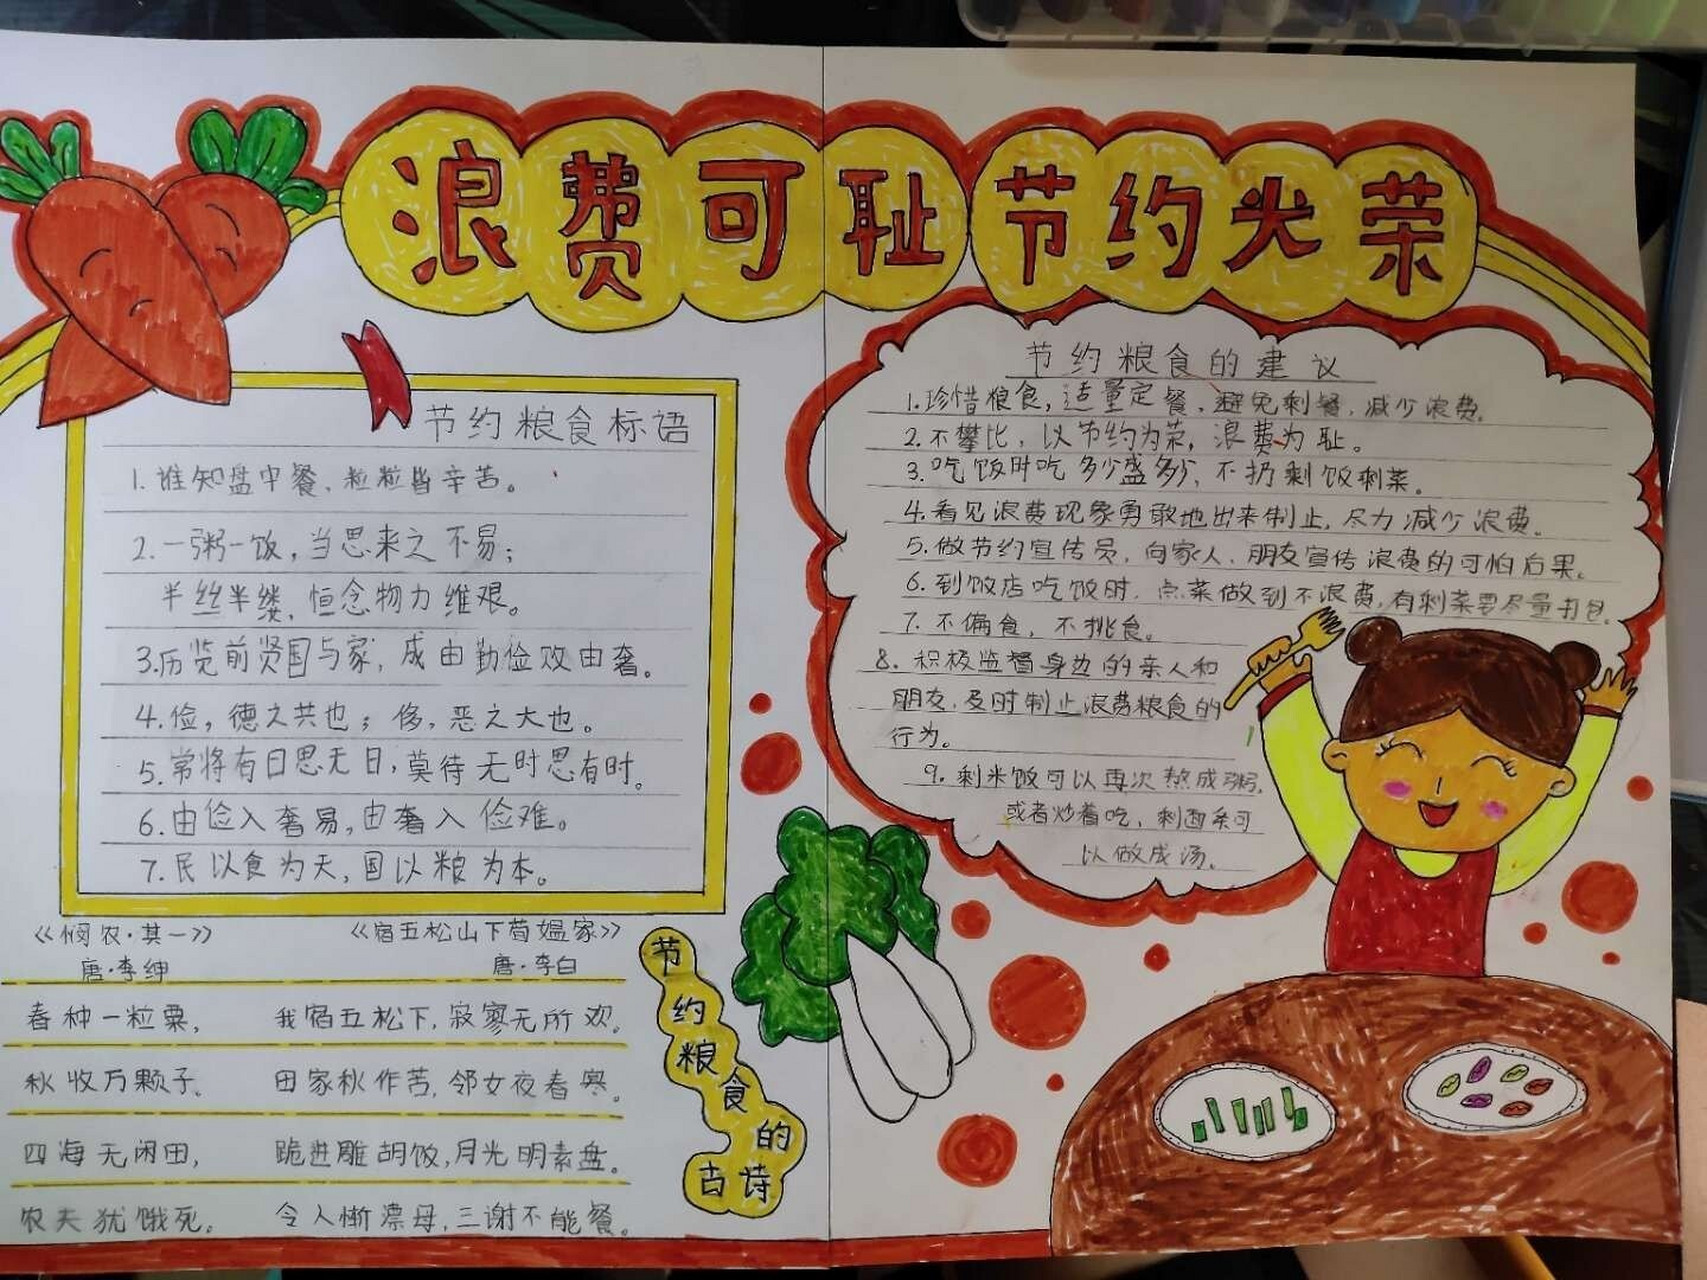 浪费可耻节约光荣
节约粮食标语
1.谁知盘中餐,粒粒皆辛苦。
2.一粥一饭,当思来之不易;
半丝半缕,恒念物力维艰。
3.历览前贤国与家,成由勤俭败由奢。
4.俭,德之共也;侈,恶之大也。
5.常将有日思无日,莫待无时思有时。
6.由俭入奢易,由奢入俭难。
7.民以食为天,国以粮为本。
节约粮食的建议
1.珍惜粮食,适量定餐,避免剩餐,减少浪费。
2.不攀比,以节约为荣,浪费为耻。
3.吃饭时吃多少盛多少,不扔剩饭剩菜。
4.看见浪费现象勇敢地出来制止,尽力减少浪费。
5.做节约宣传员,向家人、朋友宣传浪费的可怕后果。
6.到饭店吃饭时,点菜做到不浪费,有剩菜要尽量打包。
7.不偏食,不挑食。
8.积极监督身边的亲人和
朋友,及时制止浪费粮食的
行为。
9.剩米饭可以再次熬成粥,
或者炒着吃,剩西条可
以做成汤。
《悯农·其一》
唐·李绅
春种一粒粟,
秋收万颗子。
四海无闲田,
农夫犹饿死。
《宿五松山下荀媪家》
唐·李白
我宿五松下,寂寥无所欢。
田家秋作苦,邻女夜舂寒。
跪进雕胡饭,月光明素盘。
令人惭漂母,三谢不能餐。
节约粮食的古诗